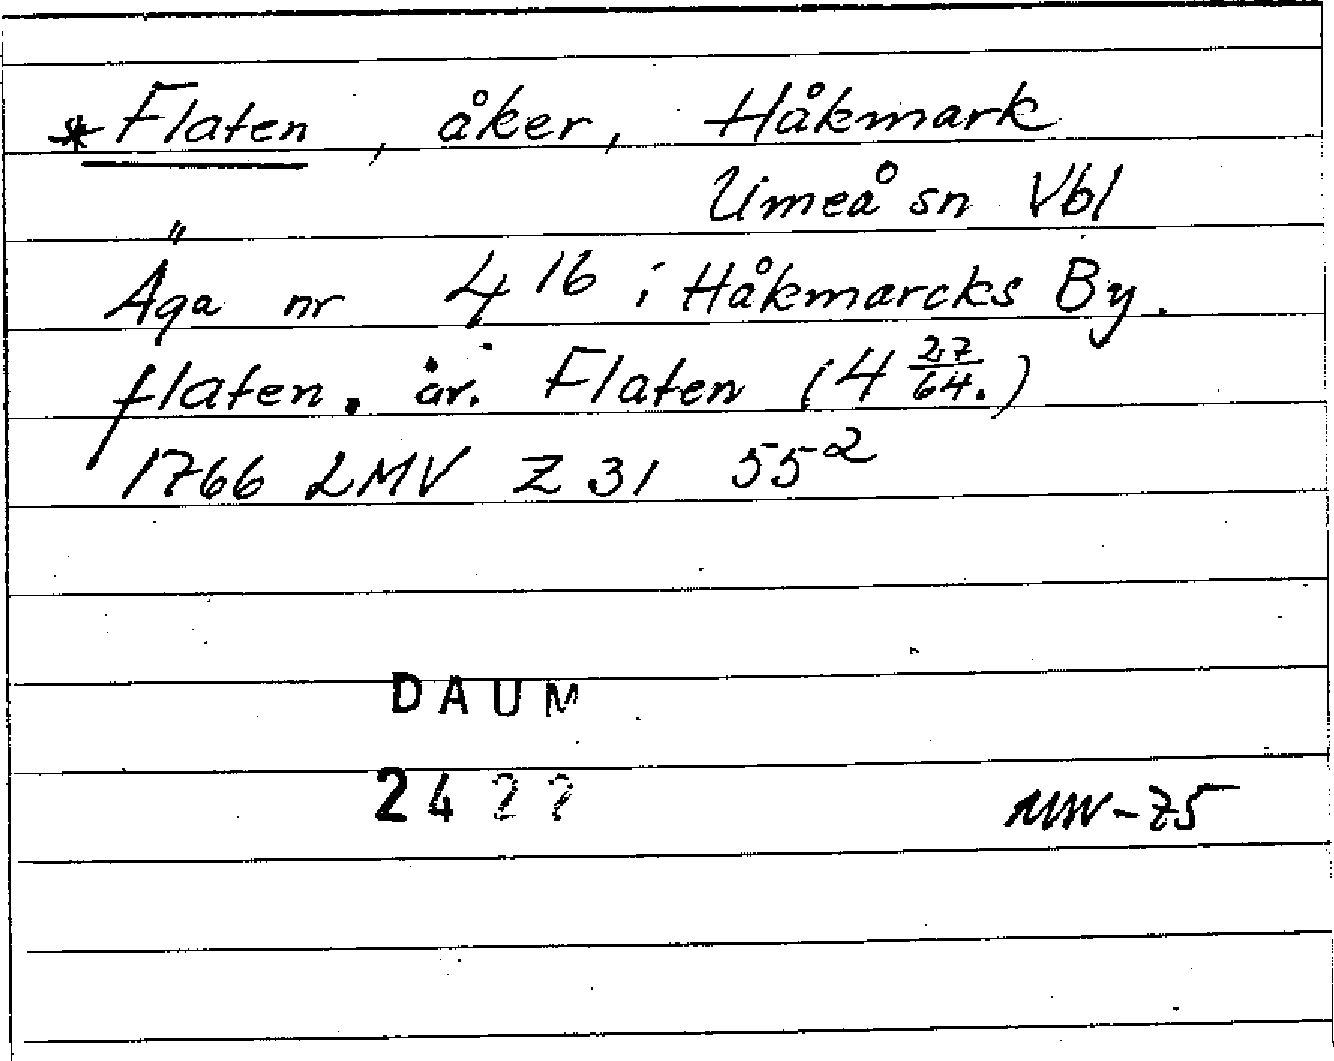 *Flaten, åker, Håkmark
Umeå sn Vbl
Äga nr 4 16 i Håkmarcks By.
flaten. är. Flaten (4 27/64.)
1766 LMV Z 31 55²
DAUM
2422
MW-75